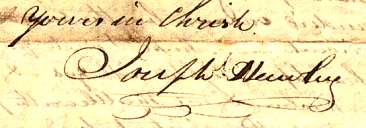 Yours in Christ
Joseph